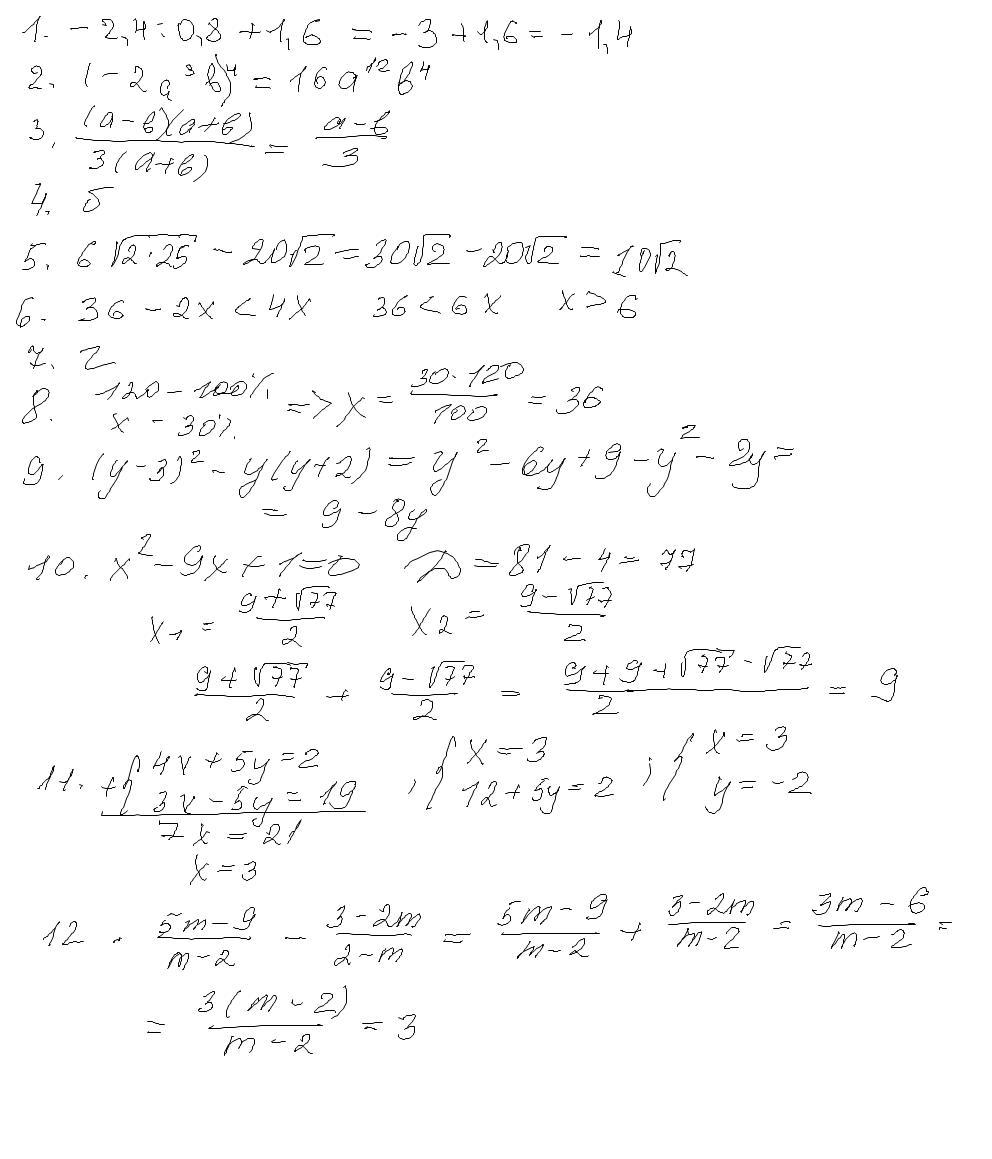 1. -2,4:0,8+1,6 = -3+1,6= -1,4
2. (-2a³b)⁴ = 16a¹²b⁴
3. (a-b)(a+b)/3(a+b) = a-b/3
4. б
5. 6√2·25 - 20√2=30√2 -20√2 = 10√2
6. 36 - 2x < 4x 36 < 6x x > 6
7. Г
8. 120 - 100% x - 30% => x = 30·120/100 = 36
9. (y-3)² - y(y+2) = y² - 6y + 9 - y² - 2y =
= 9 - 8y
10. x² - 9x + 1=0 D = 81 - 4 = 77
x₁ = 9+√77/2 x₂ = 9-√77/2
9+√77/2 + 9-√77/2 = 9+9+√77-√77/2 = 9
11. +{4x+5y=2 3x-5y=19 , {x=3 12+5y=2 ; {x=3 y=-2
7x = 21
x = 3
12. 5m-9/m-2 - 3-2m/2-m = 5m-9/m-2 + 3-2m/m-2 = 3m-6/m-2 =
= 3(m-2)/m-2 = 3